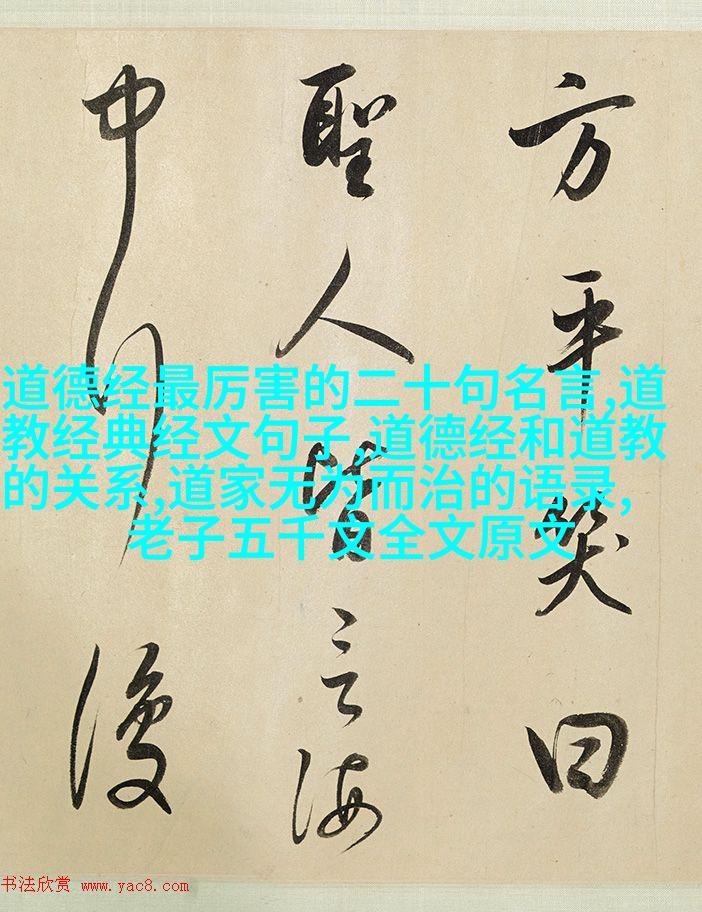 方平笑曰
聖人皆言海
中行復
道德经最厉害的二十句名言,道
教经典经文句子,道德经和道教
的关系,道家无为而治的语录,
老子五千文全文原文
书法欣赏 www.yac8.com